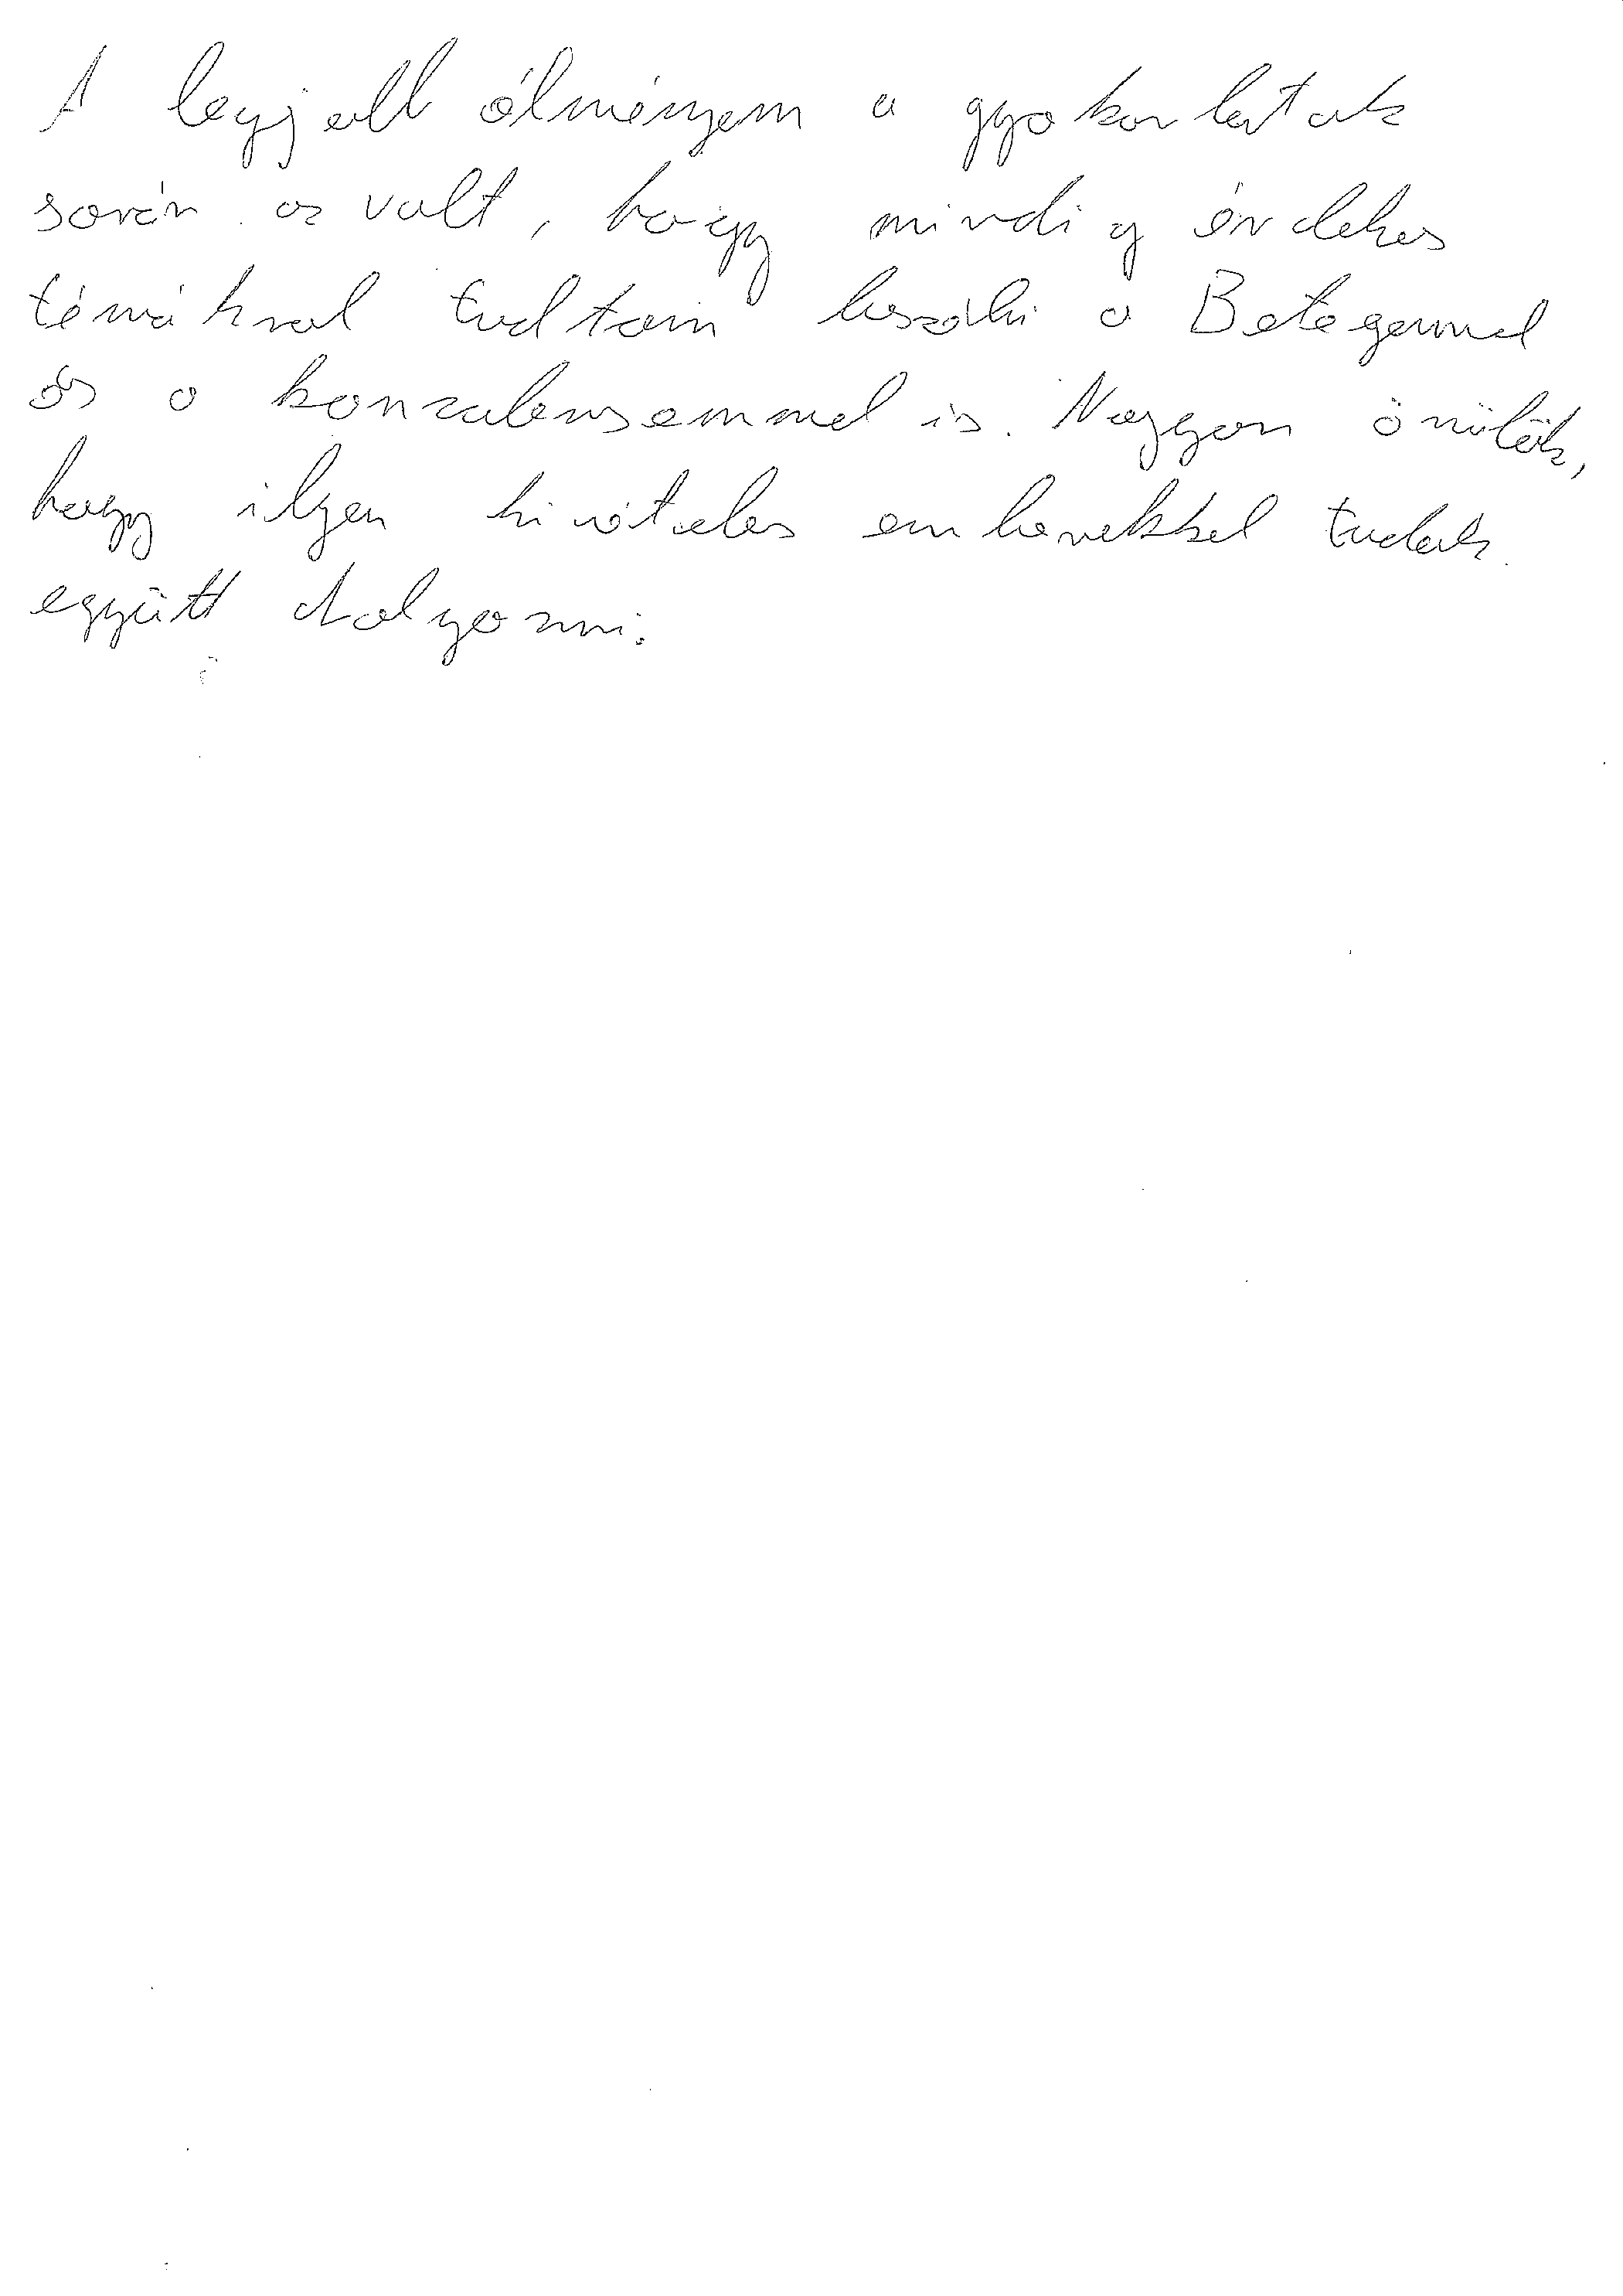 A legjobb élményem a gyakorlatok
során az volt, hogy mindig érdekes
témákról tudtam beszélni a Betegemmel
és a konzulensemmel is. Nagyon örülök,
hogy ilyen kivételes emberekkel tudok
együtt dolgozni.